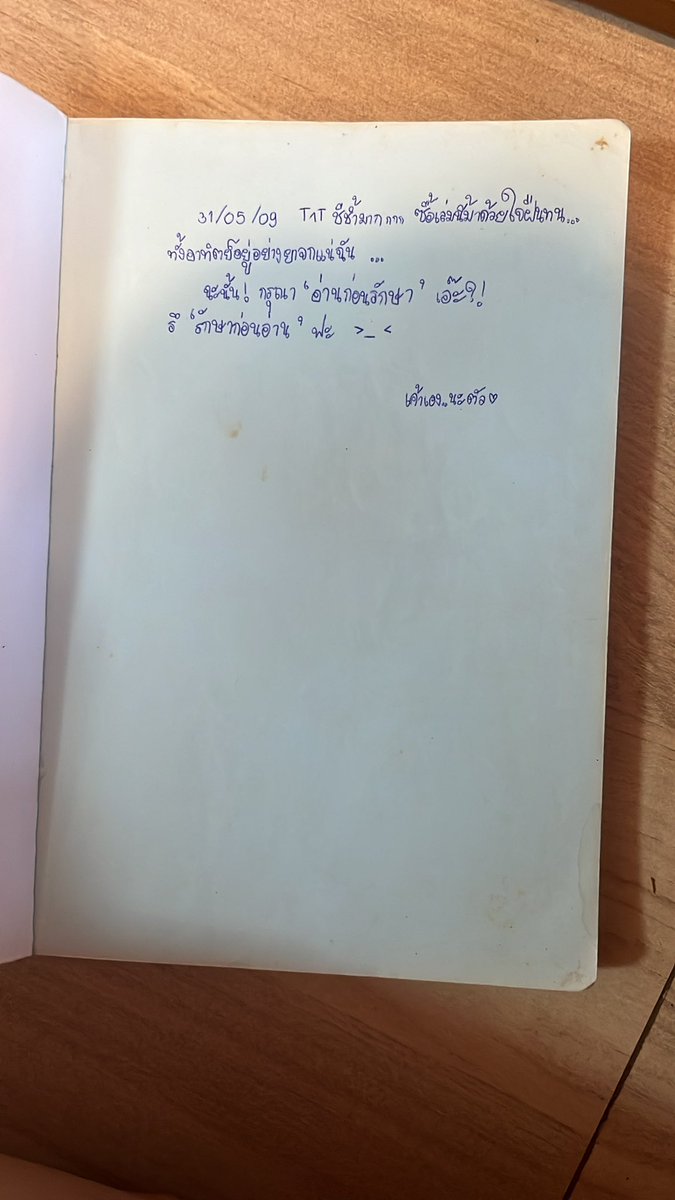 31/05/09 T^T ชีช้ำมาก กกก ซื้อเล่มนี้มาด้วยใจฝืนทน...
ทั้งอาทิตย์อยู่อย่างยาจกแน่ฉัน ...
ฉะนั้น! กรุณา 'อ่านก่อนรักษา' เอ๊ะ?!
รึ 'รักษาก่อนอ่าน' ฟะ >_<
เค้าเอง..นะตัว♡